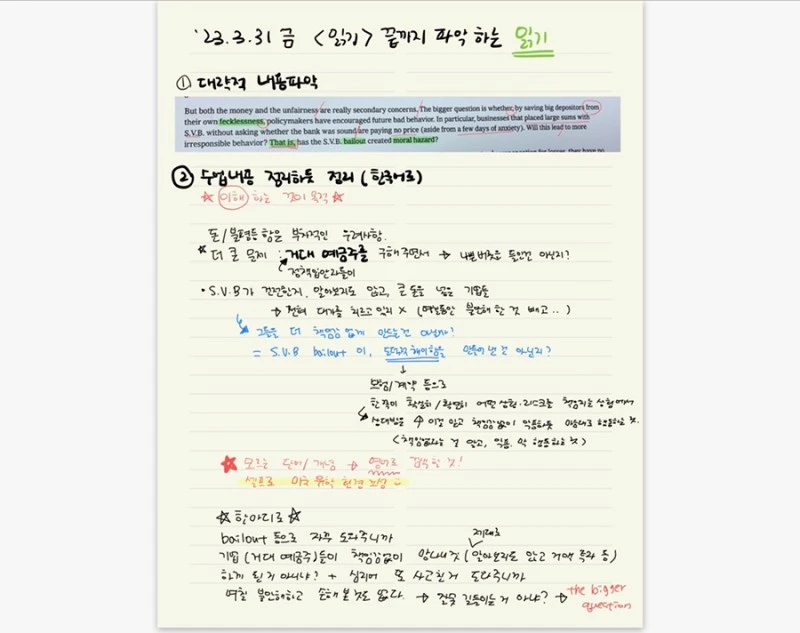 '23.3.31 금 <읽기> 끝까지 파악하는 읽기
① 대략적 내용파악
But both the money and the unfairness are really secondary concerns. The bigger question is whether, by saving big depositors from
their own fecklessness, policymakers have encouraged future bad behavior. In particular, businesses that placed large sums with
S.V.B. without asking whether the bank was sound are paying no price (aside from a few days of anxiety). Will this lead to more
irresponsible behavior? That is, has the S.V.B. bailout created moral hazard?
② 수업내용 정리하듯 정리 (한국어로)
☆ 이해 하는 것이 목적 ☆
돈/불평등함은 부차적인 우려사항.
* 더 큰 문제 : 거대 예금주를 구해주면서 → 나쁜 버릇을 들인건 아닌지?
정책입안자들이
• S.V.B가 건전한지, 알아보지도 않고, 큰 돈을 넣은 기업들
→ 전혀 대가를 치르고 있지 X (며칠동안 불안해 한 것 빼고..)
그들을 더 책임감 없게 만드는건 아닐까?
= S.V.B bailout 이, 도덕적 해이함을 만들어 낸 건 아닌지?
↓
보험/계약 등으로
한 쪽이 확실히/확연히 어떤 상황·리스크를 책임지는 상황에서
상대방을 이걸 알고 책임감없이 악용하듯 행동하는 것.
(책임없다는 걸 알고, 악용. 막 행동하는 것)
★ 모르는 단어/개념 → 영어로 검색할 것!
셀프로 미국 유학 현견
☆ 한마디로 ☆
bailout 등으로 자꾸 도와주니까
제대로
기업 (거대 예금주)들이 책임감없이 (알아보지도 않고 거액 투자 등)
하게 된 거 아니냐? + 심지어 또 사고친거 도와주니까
며칠 불안해하고 손해 본 것도 없다. → 잘못 길들이는 거 아냐? → the bigger
question